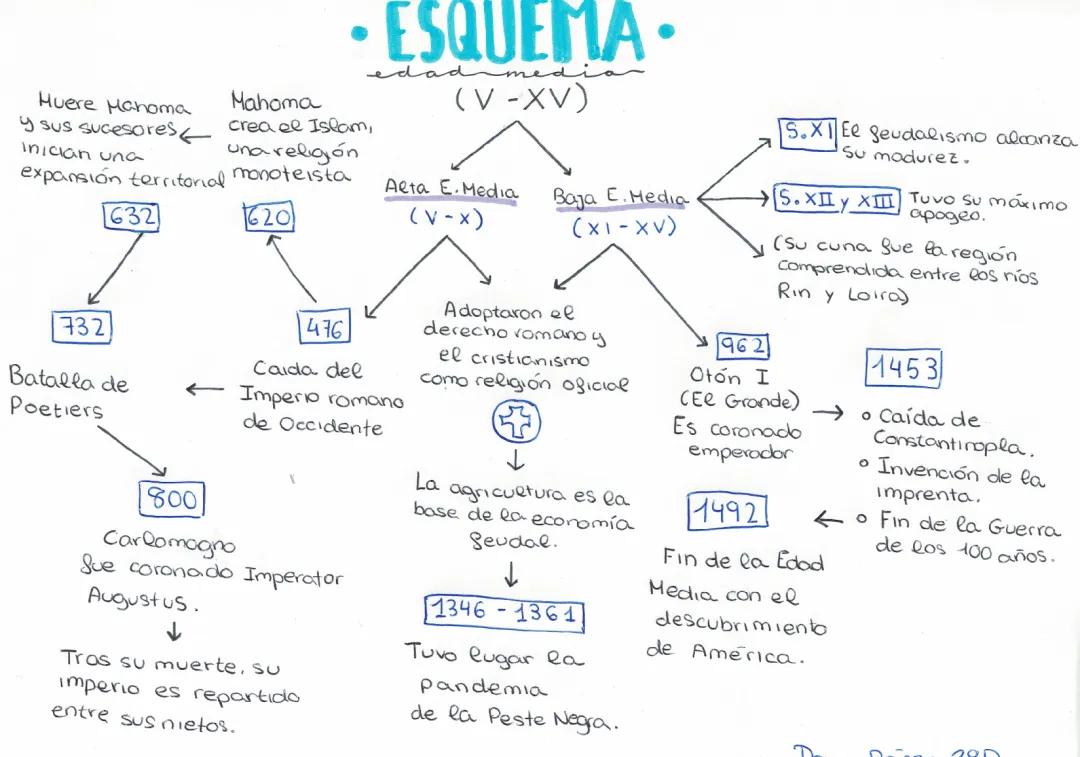 · ESQUEMA ·
edad media
(V - XV)
Muere Mahoma
y sus sucesores
inician una
expansión territorial
632
Mahoma
crea el Islam,
una religión
monoteista
620
Alta E. Media
(V - X)
Baja E. Media
(XI - XV)
S. XI El feudalismo alcanza
su madurez.
S. XII y XIII Tuvo su máximo
apogeo.
(Su cuna fue la región
comprendida entre los ríos
Rin y Loira)
732
Batalla de
Poetiers
476
Caida del
Imperio romano
de Occidente
Adoptaron el
derecho romano y
el cristianismo
como religión oficial
962
Otón I
(El Grande)
Es coronado
emperador
1453
o Caída de
Constantinopla.
o Invención de la
imprenta.
o Fin de la Guerra
de los 100 años.
800
Carlomagno
fue coronado Imperator
Augustus.
Tras su muerte, su
imperio es repartido
entre sus nietos.
La agricultura es la
base de la economía
feudal.
1346 - 1361
Tuvo lugar la
pandemia
de la Peste Negra.
1492
Fin de la Edad
Media con el
descubrimiento
de América.